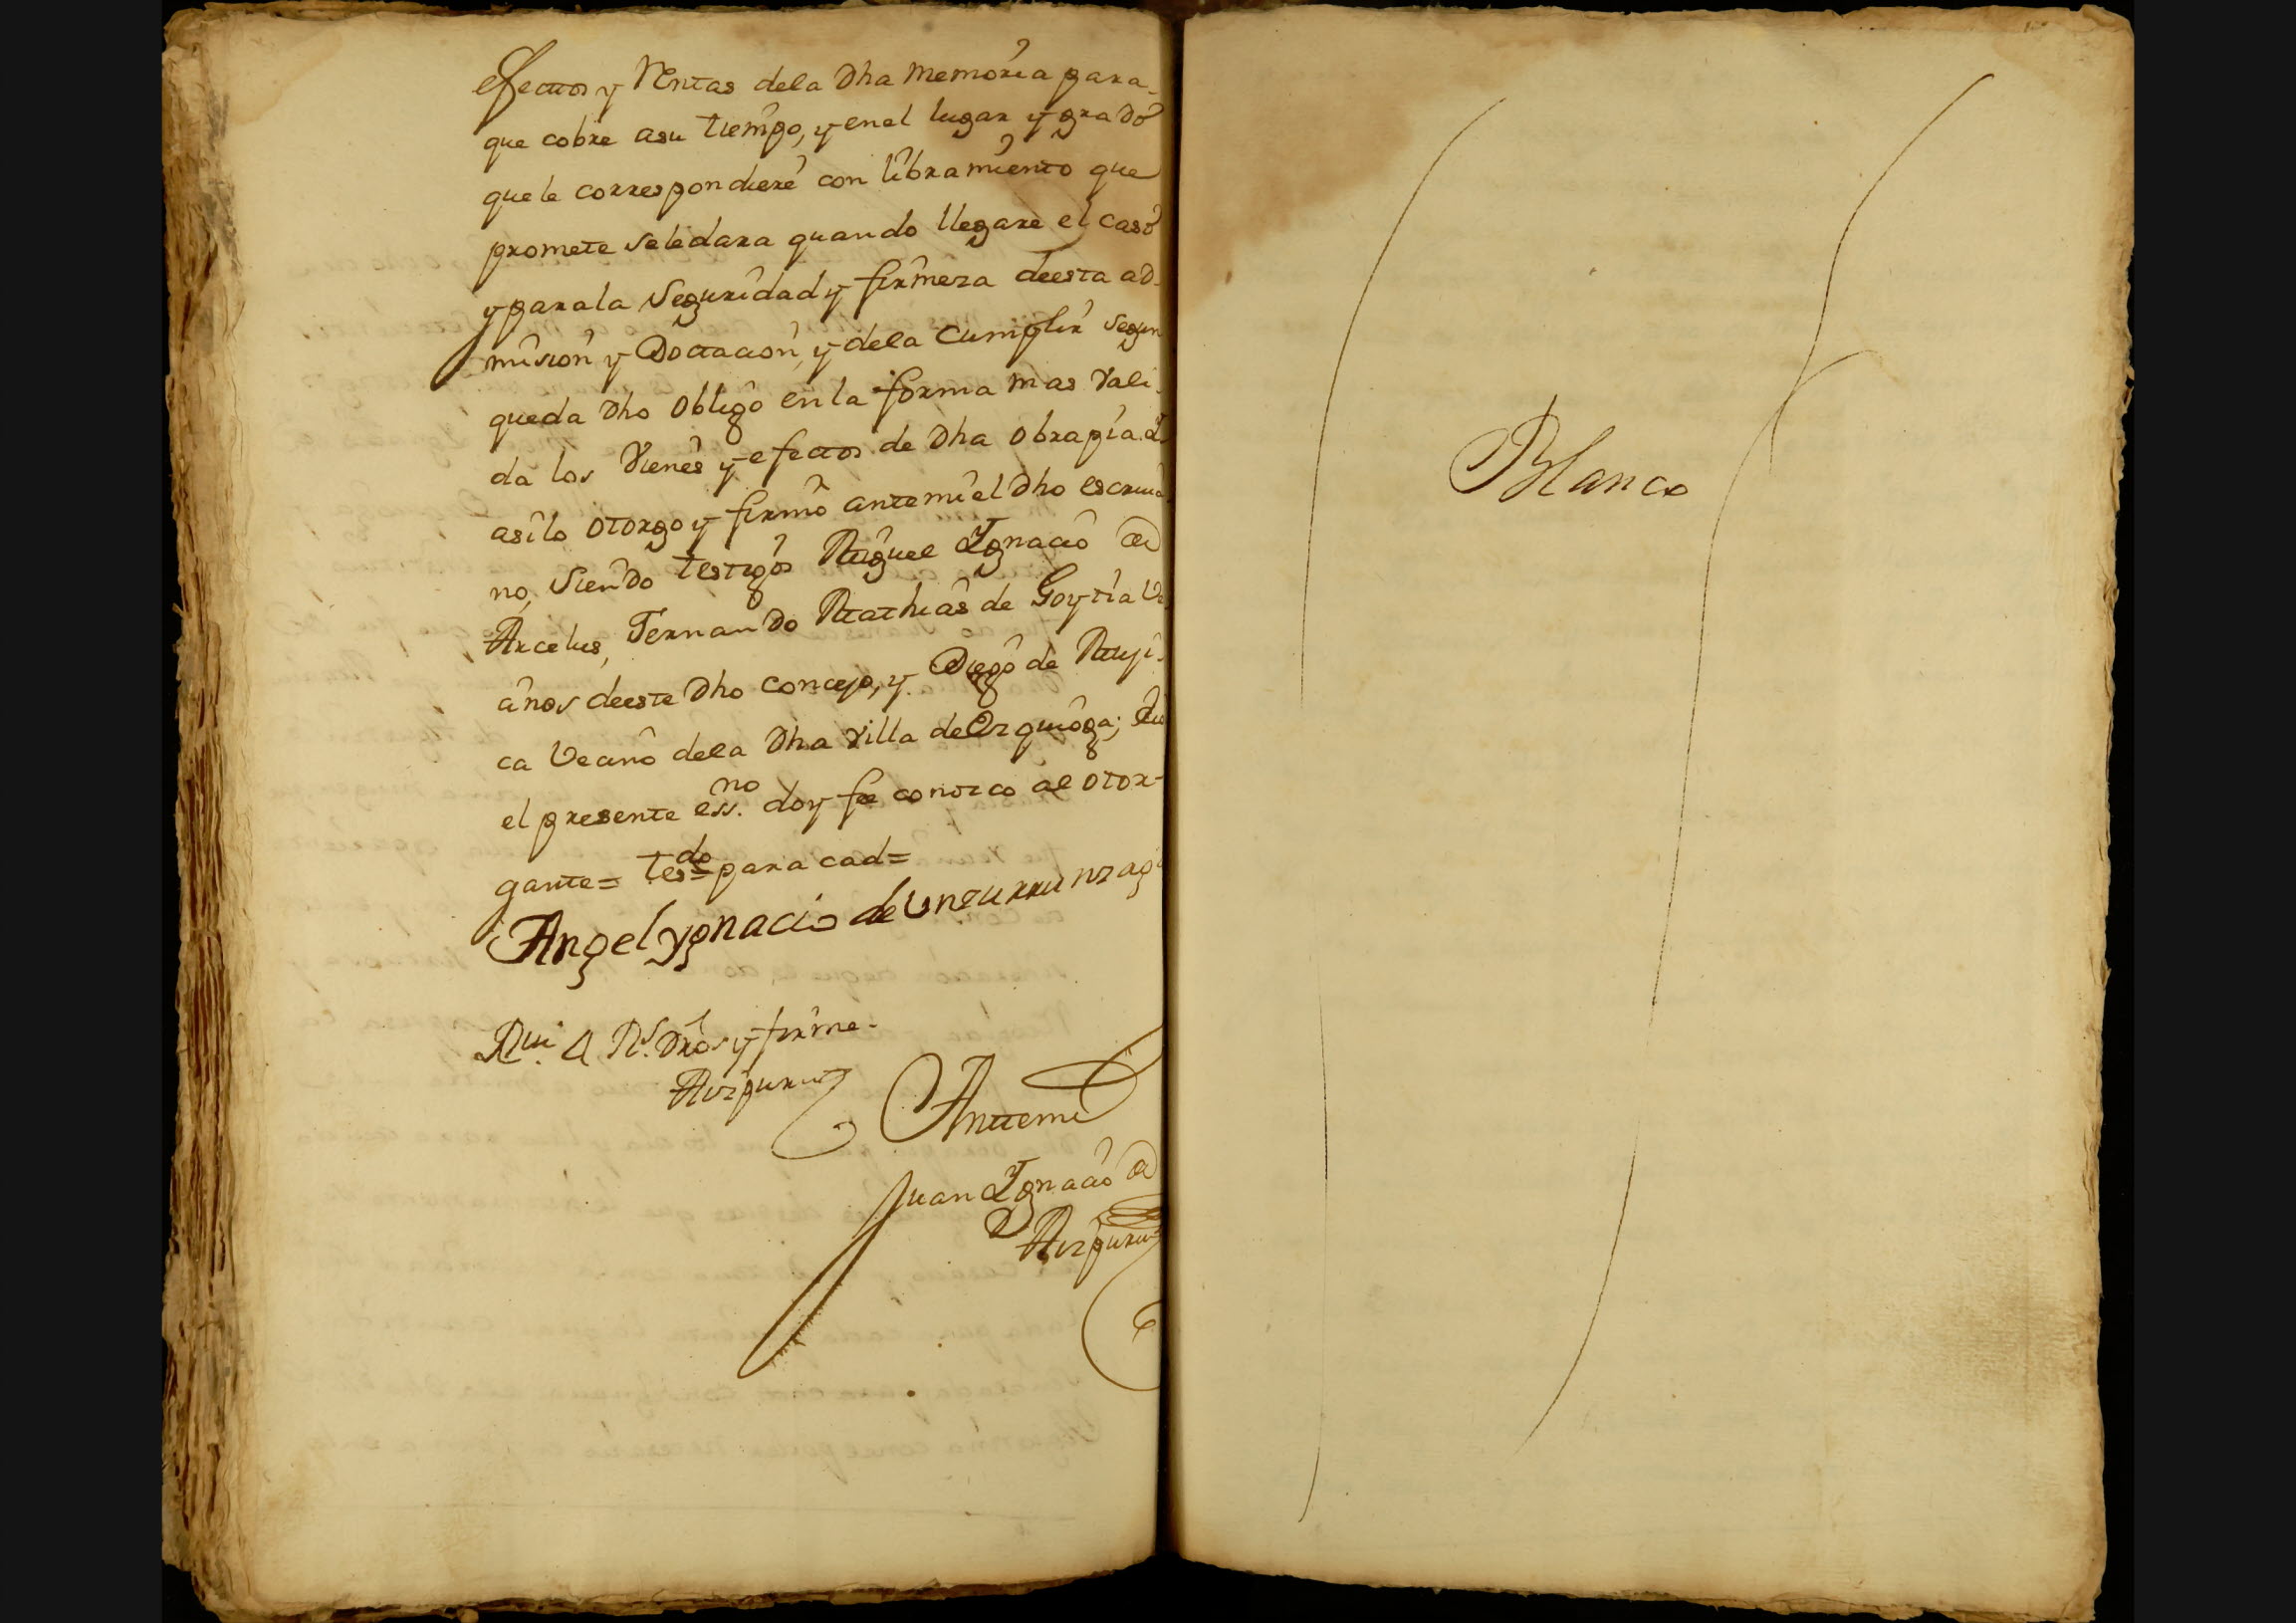 efectos y Rentas dela Dha memoria para
que cobre asu tiempo, y enel lugar y grado
quele correspondiere con libramiento que
promete seledara quando llegare el caso
y parala seguridad y firmeza deesta ad-
mision y Dotacion, y dela cumplir segun
queda Dho obligo en la forma mas vali-
da los vienes y efectos de Dha obrapia. I
asilo otorgo y firmò antemi el Dho escriua
no, siendo testigos Miguel Ignacio de
Arcelus, Fernando Mathias de Goytia Ve
cinos deeste Dho concejo, y Diego de Muxi-
ca Vecino dela Dha villa de Ezquioga; Eio
el presente ess.no doy fee conozco al otor-
gante= tesdo= para cad=
Angel Ygnacio de Unzurrunzaga
Rui 4 Rs. Dros y firme.
Aizpuru
Antemi
Juan Ignacio de
Aizpuru
Blanco